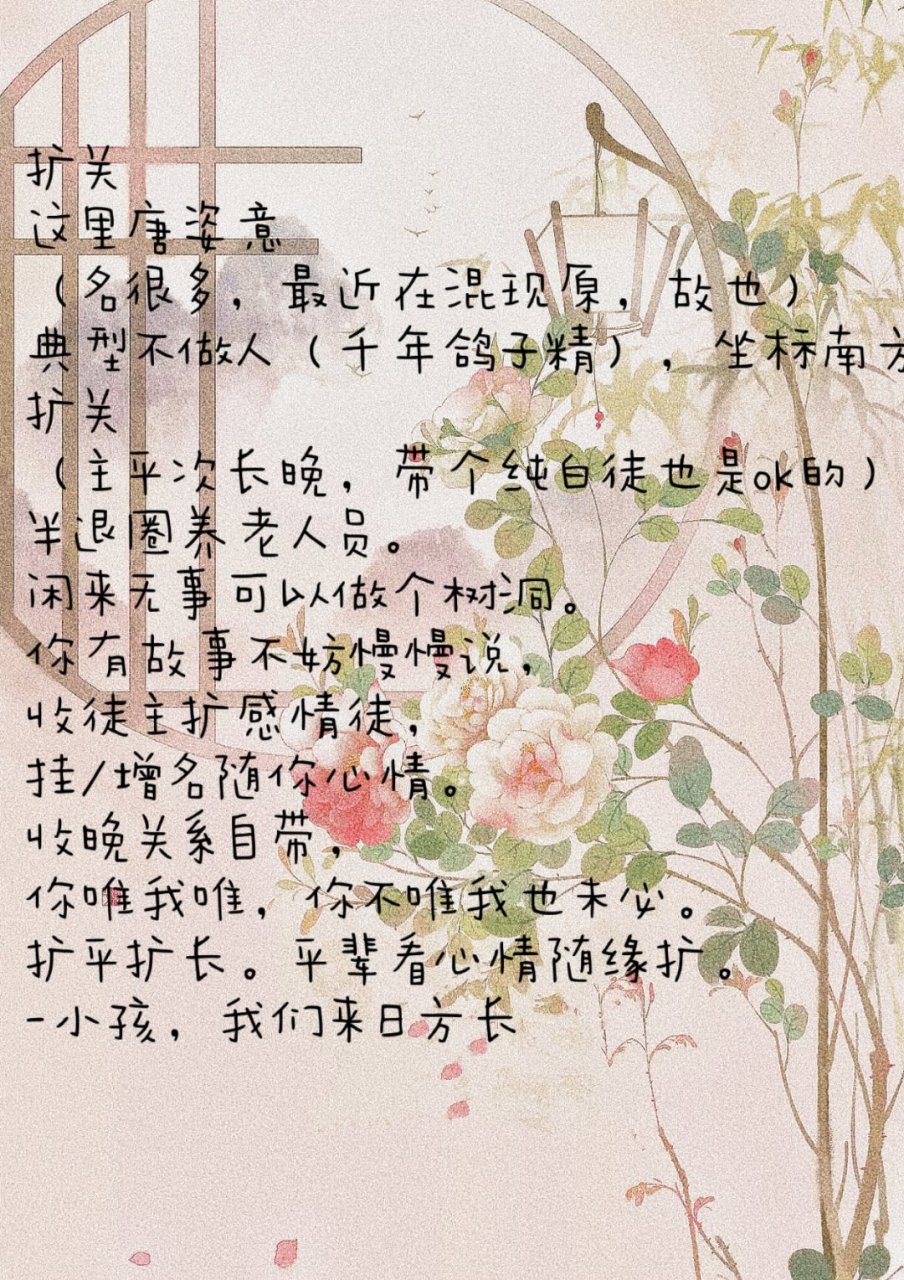 扩关
这里唐姿意
（名很多，最近在混现原，故也）
典型不做人（千年鸽子精），坐标南方
扩关
（主平次长晚，带个纯白徒也是ok的）
半退圈养老人员。
闲来无事可以做个树洞。
你有故事不妨慢慢说，
收徒主扩感情徒，
挂/增名随你心情。
收晚关系自带，
你唯我唯，你不唯我也未必。
扩平扩长。平辈看心情随缘扩。
-小孩，我们来日方长